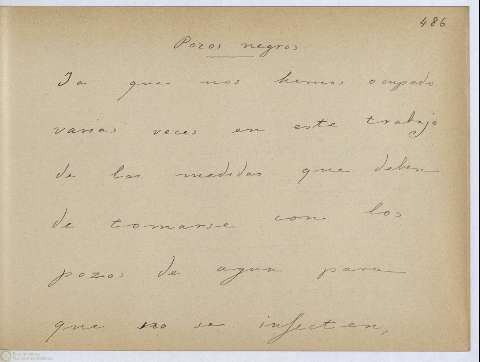 486
Pozos negros
Ya que nos hemos ocupado
varias veces en este trabajo
de las medidas que deben
de tomarse con los
pozos de agua para
que no se infecten,